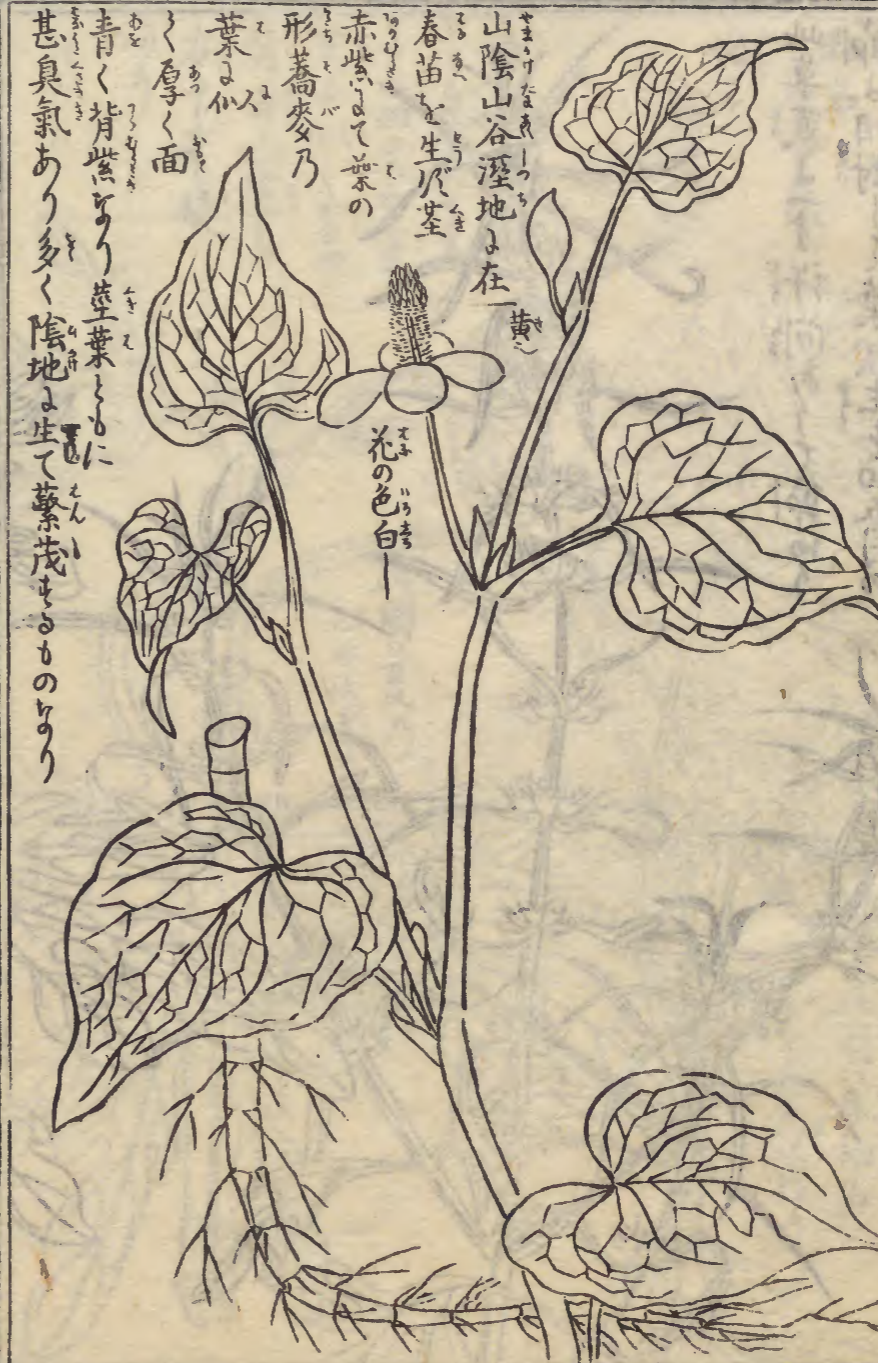 山陰山谷溼地に在
春苗を生ず茎
赤紫にて葉の
形蕎麥乃
葉に似て
く厚く面
青く背紫なり莖葉ともに
甚臭氣あり多く陰地に生て繁茂するものなり
黄シ
花の色白し